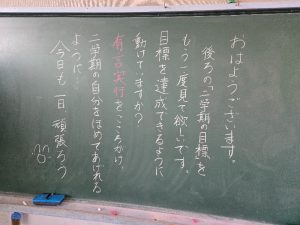 おはようございます。
後ろの「二学期の目標」を
もう一度見て欲しいです。
目標を達成できるように
動けていますか？
有言実行をこころがけ、
二学期の自分をほめてあげれる
ように…
今日も一日頑張ろう